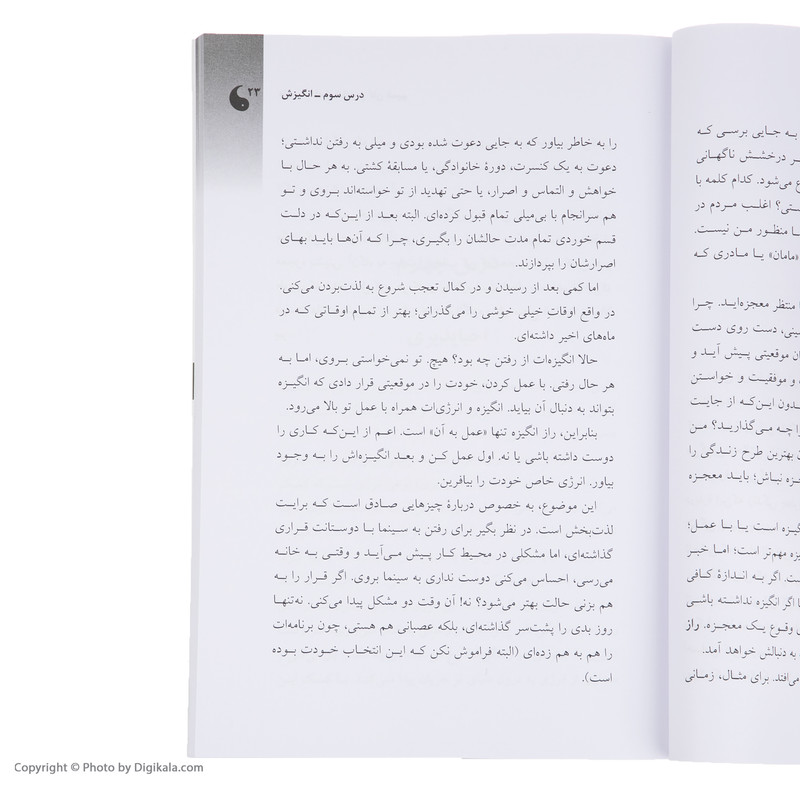 به جایی برسی که
ر درخشش ناگهانی
ع می‌شود. کدام کلمه با
ستی؟ اغلب مردم در
ا منظور من نیست.
«مامان» یا مادری که
ا منتظر معجزه‌اید. چرا
سینی، دست روی دست
ن موقعیتی پیش آید و
و موفقیت و خواستن
دون این‌که از جایت
را چه می‌گذارید؟ من
ن بهترین طرح زندگی را
جزه نباش؛ باید معجزه
گیزه است یا با عمل؛
یزه مهم‌تر است؛ اما خبر
ت. اگر به اندازهٔ کافی
ا اگر انگیزه نداشته باشی
ی وقوع یک معجزه. راز
به دنبالش خواهد آمد.
می‌افتد. برای مثال، زمانی
درس سوم ــ انگیزش ۲۳
را به خاطر بیاور که به جایی دعوت شده بودی و میلی به رفتن نداشتی؛
دعوت به یک کنسرت، دورهٔ خانوادگی، یا مسابقهٔ کشتی. به هر حال با
خواهش و التماس و اصرار، یا حتی تهدید از تو خواسته‌اند بروی و تو
هم سرانجام با بی‌میلی تمام قبول کرده‌ای. البته بعد از این‌که در دلت
قسم خوردی تمام مدت حالشان را بگیری، چرا که آن‌ها باید بهای
اصرارشان را بپردازند.
اما کمی بعد از رسیدن و در کمال تعجب شروع به لذت‌بردن می‌کنی.
در واقع اوقاتِ خیلی خوشی را می‌گذرانی؛ بهتر از تمام اوقاتی که در
ماه‌های اخیر داشته‌ای.
حالا انگیزه‌ات از رفتن چه بود؟ هیچ. تو نمی‌خواستی بروی، اما به
هر حال رفتی. با عمل کردن، خودت را در موقعیتی قرار دادی که انگیزه
بتواند به دنبال آن بیاید. انگیزه و انرژی‌ات همراه با عمل تو بالا می‌رود.
بنابراین، راز انگیزه تنها «عمل به آن» است. اعم از این‌که کاری را
دوست داشته باشی یا نه. اول عمل کن و بعد انگیزه‌اش را به وجود
بیاور. انرژی خاص خودت را بیافرین.
این موضوع، به خصوص دربارهٔ چیزهایی صادق است که برایت
لذت‌بخش است. در نظر بگیر برای رفتن به سینما با دوستانت قراری
گذاشته‌ای، اما مشکلی در محیط کار پیش می‌آید و وقتی به خانه
می‌رسی، احساس می‌کنی دوست نداری به سینما بروی. اگر قرار را به
هم بزنی حالت بهتر می‌شود؟ نه! آن وقت دو مشکل پیدا می‌کنی. نه‌تنها
روز بدی را پشت‌سر گذاشته‌ای، بلکه عصبانی هم هستی، چون برنامه‌ات
را هم به هم زده‌ای (البته فراموش نکن که این انتخاب خودت بوده
است).
Copyright © Photo by Digikala.com